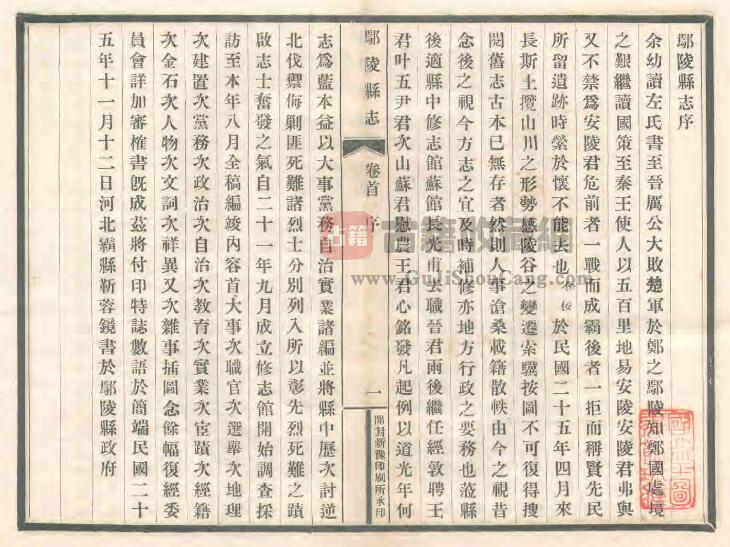 鄢陵縣志序
余幼讀左氏書至晉厲公大敗楚軍於鄭之鄢陵知鄭國處境
之艱繼讀國策至秦王使人以五百里地易安陵安陵君弗與
又不禁爲安陵君危前者一戰而成霸後者一拒而稱賢先民
所留遺跡時縈於懷不能去也不佞於民國二十五年四月來
長斯土攬山川之形勢感陵谷之變遷索驥按圖不可復得搜
閱舊志古本已無存者然則人事滄桑載籍散帙由今之視昔
念後之視今方志之宜及時補修亦地方行政之要務也蒞縣
後適縣中修志館蘇館長光甫去職晉君雨後繼任經敦聘王
君叶五尹君次山蘇君慰農王君心銘發凡起例以道光年何
鄢陵縣志 卷首 序 一 開封新豫印刷所承印
志爲藍本益以大事黨務自治實業諸編並將縣中歷次討逆
北伐禦侮剿匪死難諸烈士分別列入所以彰先烈死難之蹟
啟志士奮發之氣自二十一年九月成立修志館開始調查採
訪至本年八月全稿編竣內容首大事次職官次選舉次地理
次建置次黨務次政治次自治次教育次實業次宦蹟次經籍
次金石次人物次文詞次祥異又次雜事插圖念餘幅復經委
員會詳加審榷書旣成茲將付印特誌數語於簡端民國二十
五年十一月十二日河北霸縣靳蓉鏡書於鄢陵縣政府
古籍 古籍收藏網
www.GuJiShouCang.com